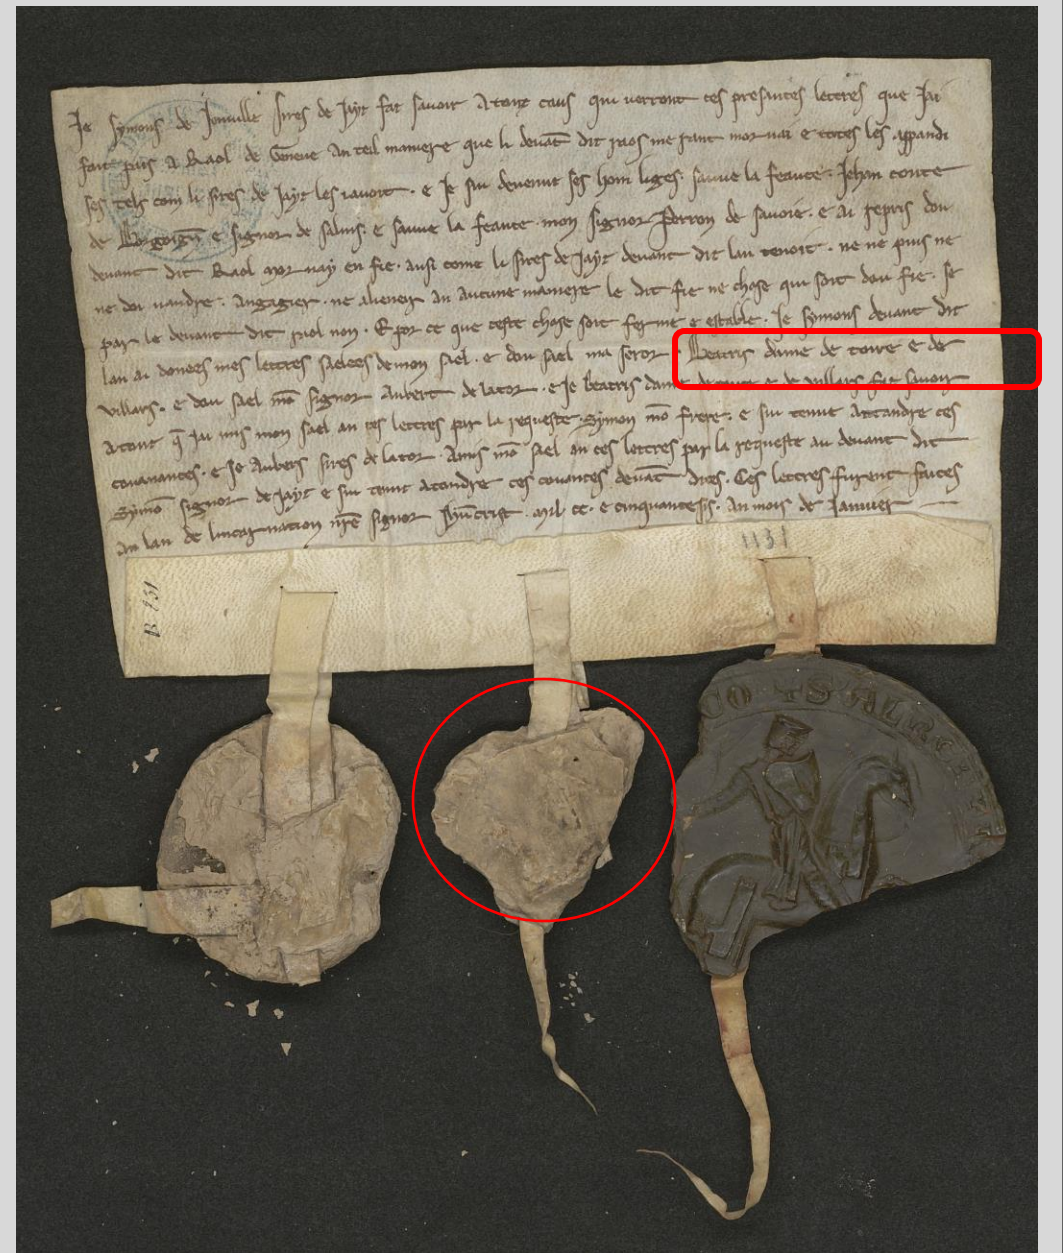 Je symons de Jenuille sires de Jayz fai savoir a touz caus qui verront ces presantes lettres que Jai
fait pais a Raol de Geneve an teil maniere que li devāt dit raos me rant mornai e totes les apandi
ses tels com li sires de Jayz les tavoit. e Je sui devenuz ses hom liges. sauve la feaute. Jehan conte
de e signor de salins. e sauve la feaute. mon signor Perron de savoie. e ai repris dou
devant dit Raol mornay en fie. ausi come li sires de Jayz devant dit lau tenoit. ne ne puis ne
ne doi vandre. angagier. ne alieneir an aucune maniere le dit fie ne chose qui soit dou fie. se
par le devant dit raol non. E por ce que ceste chose soit ferme e estable. Je symons devant dit
lan ai donees mes lettres saelees de mon sael. e dou sael ma seror. Beatris dame de toire e de
villars. e dou sael mō signor Aubert de lator. e Je beatris dame de toire e de villars fai savoir
a touz q̄ Jai mis mon sael an ces lettres par la requeste symon mō frere. e sui tenue attandre ces
covanances. e Je Aubers sires de lator. Ai mis mō sael an ces lettres par la requeste au devant dit
symō signor de Jayz e sui tenuz atandre ces devāt dites. Ces lettres furent faites
an lan de lincarnation nr̄e signor . mil cc. e cinquante sis. an mois de Janvier
1131
B 131
CO S